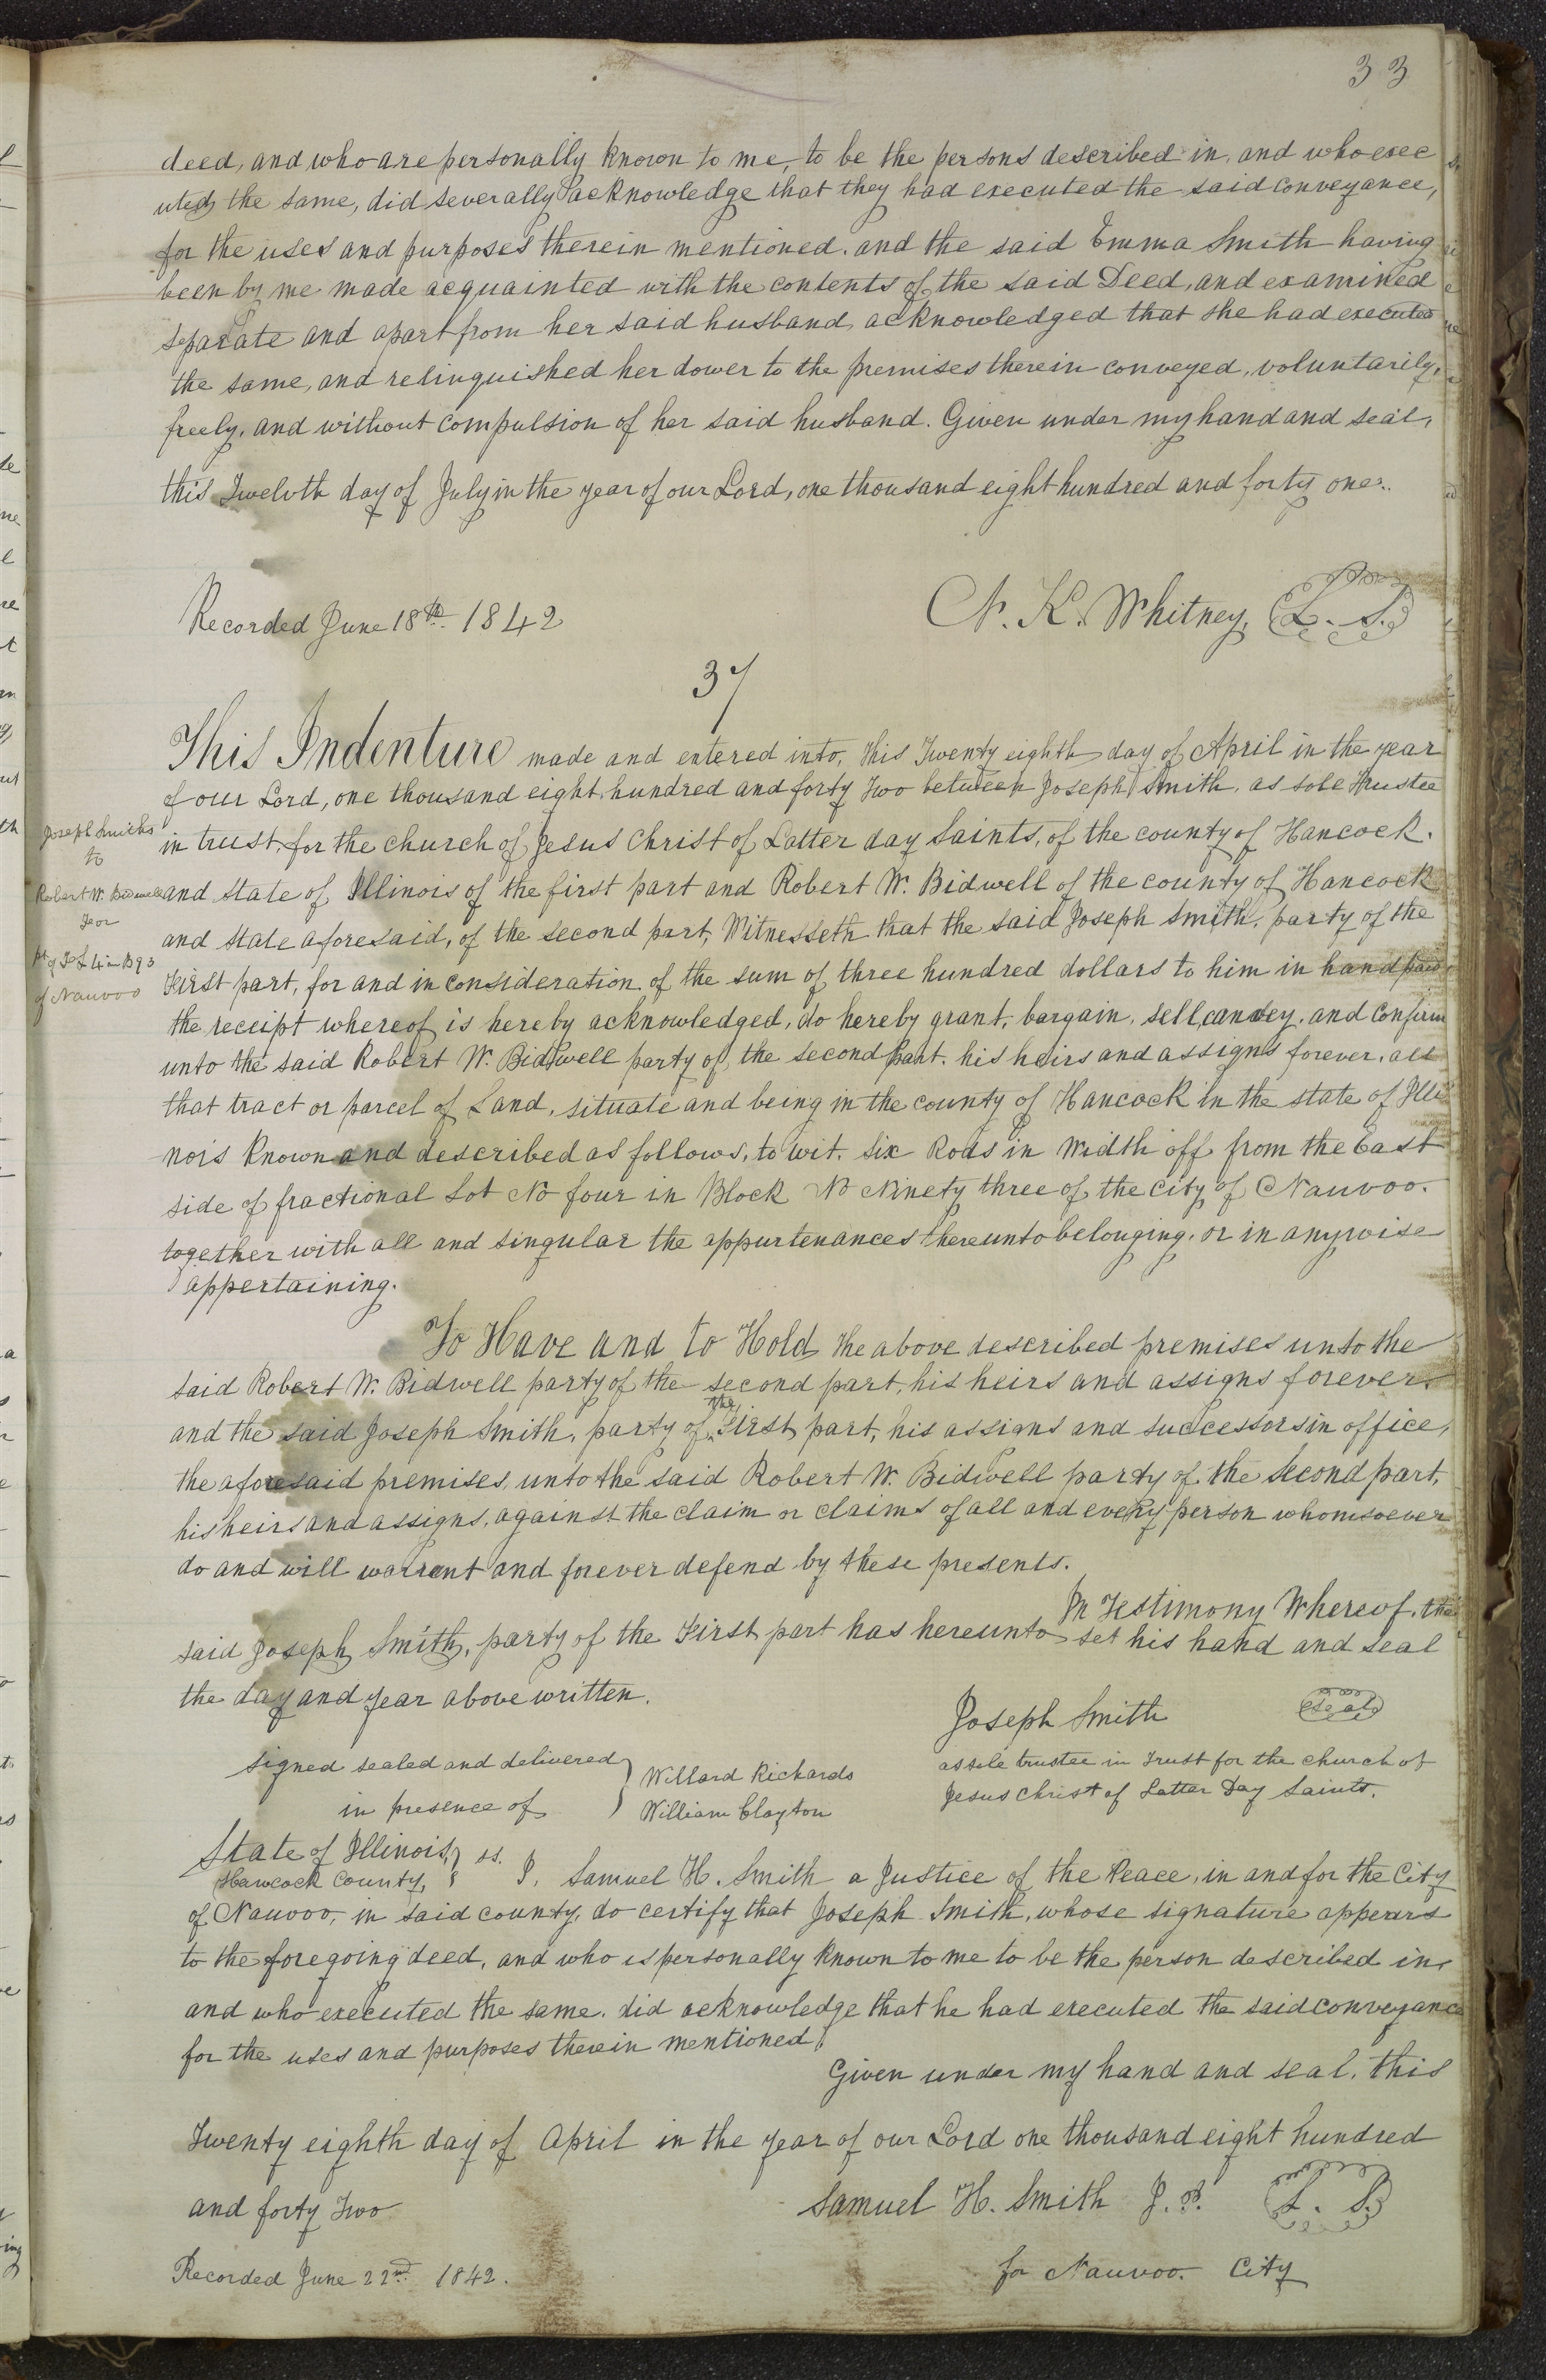 33
deed, and who are personally known to me, to be the persons described in, and who exec
uted the same, did severally acknowledge that they had executed the said conveyance,
for the uses and purposes therein mentioned. and the said Emma Smith having
been by me made acquainted with the contents of the said Deed, and examined
separate and apart from her said husband, acknowledged that she had executed
the same, and relinquished her dower to the premises therein conveyed, voluntarily,
freely, and without compulsion of her said husband. Given under my hand and seal,
this Twelvth day of July in the year of our Lord, one thousand eight hundred and forty one.
N. K. Whitney, L. S.
Recorded June 18th 1842
37
This Indenture made and entered into, this Twenty eighth day of April in the year
of our Lord, one thousand eight hundred and forty Two between Joseph Smith, as sole Trustee
in trust, for the church of Jesus Christ of Latter day Saints, of the county of Hancock.
and state of Illinois of the first part and Robert W. Bidwell of the county of Hancock
and state aforesaid, of the second part, Witnesseth that the said Joseph Smith, party of the
First part, for and in consideration of the sum of three hundred dollars to him in hand paid,
the receipt whereof is hereby acknowledged, do hereby grant, bargain, sell, convey, and confirm
unto the said Robert W. Bidwell party of the second Part, his heirs and assigns forever, all
that tract or parcel of Land, situate and being in the county of Hancock in the state of Illi
nois known and described as follows, to wit. Six Rods in Width off from the East
side of fractional Lot No four in Block No Ninety three of the City of Nauvoo.
together with all and singular the appurtenances thereunto belonging, or in anywise
appertaining.
Joseph Smith
to
Robert W. Bidwell
For
pt of Lot 4 in B 93
of Nauvoo
To Have and to Hold the above described premises unto the
said Robert W. Bidwell party of the second part, his heirs and assigns forever.
and the said Joseph Smith, party of the First part, his assigns and successors in office,
the aforesaid premises, unto the said Robert W. Bidwell party of the Second part,
his heirs and assigns, against the claim or claims of all and every person whomsoever
do and will warrant and forever defend by these presents.
In Testimony Whereof, the
said Joseph Smith, party of the First part has hereunto set his hand and seal
the day and year above written.
Joseph Smith seal
as sole trustee in Trust for the church of
Jesus Christ of Latter Day Saints.
signed sealed and delivered
in presence of
Willard Richards
William Clayton
State of Illinois,
Hancock County, ss. I, Samuel H. Smith a Justice of the Peace, in and for the City
of Nauvoo, in said county, do certify that Joseph Smith, whose signature appears
to the foregoing deed, and who is personally known to me to be the person described in,
and who executed the same. did acknowledge that he had executed the said conveyance
for the uses and purposes therein mentioned.
Given under my hand and seal, this
Twenty eighth day of April in the year of our Lord one thousand eight hundred
and forty Two
Samuel H. Smith J. P. L. S.
for Nauvoo City
Recorded June 22nd 1842.